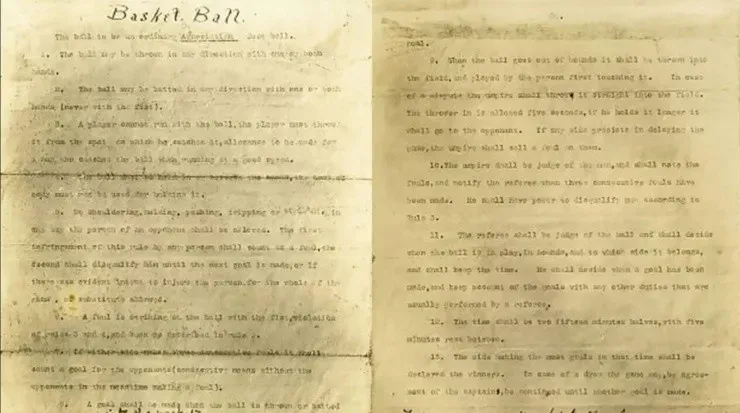 Basket Ball.
The ball to be an ordinary Association foot ball.
1. The ball may be thrown in any direction with one or both
hands.
2. The ball may be batted in any direction with one or both
hands (never with the fist).
3. A player cannot run with the ball, the player must throw
it from the spot on which he catches it, allowance to be made for
a man who catches the ball when running at a good speed.
4. The ball must be held in or between the hands, the arms or
body must not be used for holding it.
5. No shouldering, holding, pushing, tripping or striking in
any way the person of an opponent shall be allowed. The first
infringement of this rule by any person shall count as a foul, the
second shall disqualify him until the next goal is made, or if
there was evident intent to injure the person, for the whole of the
game, no substitute allowed.
6. A foul is striking at the ball with the fist, violation
of rules 3 and 4, and such as described in rule 5.
7. If either side makes three consecutive fouls it shall
count a goal for the opponents (consecutive means without the
opponents in the meantime making a foul).
8. A goal shall be made when the ball is thrown or batted
goal.
9. When the ball goes out of bounds it shall be thrown into
the field, and played by the person first touching it. In case
of a dispute the umpire shall throw it straight into the field.
The thrower in is allowed five seconds, if he holds it longer it
shall go to the opponent. If any side presists in delaying the
game, the umpire shall call a foul on them.
10. The umpire shall be judge of the men, and shall note the
fouls, and notify the referee when three consecutive fouls have
been made. He shall have power to disqualify men according to
Rule 5.
11. The referee shall be judge of the ball and shall decide
when the ball is in play, in bounds, and to which side it belongs,
and shall keep the time. He shall decide when a goal has been
made, and keep account of the goals with any other duties that are
usually performed by a referee.
12. The time shall be two fifteen minutes halves, with five
minutes rest between.
13. The side making the most goals in that time shall be
declared the winners. In case of a draw the game may, by agree-
ment of the captains, be continued until another goal is made.